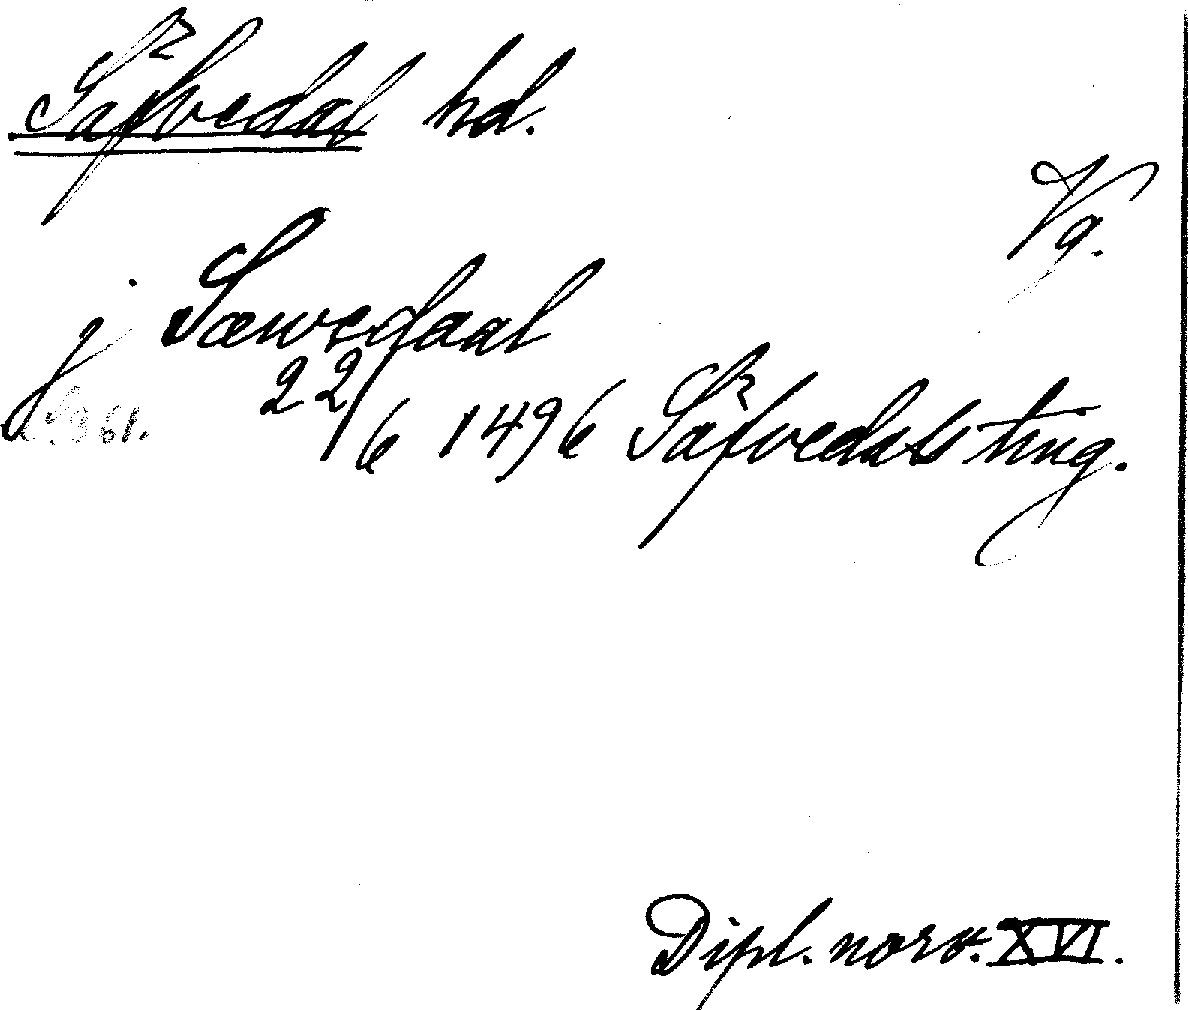 Säfvedal hd.
Vg.
j Sæwedaal
S. 361. 22/6 1496 Säfvedals ting.
Dipl. norv. XVI.